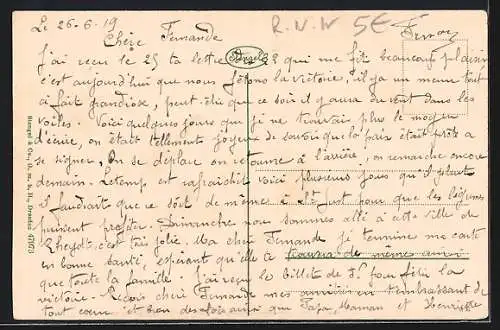 Le 26-6-19
R.V.W 5€
Chère Fernande
J'ai reçu le 25 ta lettre qui me fit beaucoup plaisir
c'est aujourd'hui que nous fêtons la victoire, il y a un menu tout
à fait grandiose, peut-être que ce soir il y aura du vent dans les
voiles. Voici quelques jours que je ne trouvais plus le moyen
d'écrire, on était tellement joyeux de savoir que la paix était prête a
se signer. On se déplace on retourne à l'arrière, on remarche encore
demain. Le temp est rafraichit voici plusieurs jours qu'il pleut
il faudrait que ce soit de même à St just pour que les légumes
puissent profiter. Dimanche nous sommes allé à cette ville de
Rheydt c'est très jolie. Ma cher Fernande je termine ma carte
en bonne santé, espérant qu'elle te trouvera de même ainsi
que toute la famille. J'ai reçu le billet de pour fêter la
victoire. Reçois chère Fernande mes amitiés en t'embrassant de
tout cœur et bien des fois ainsi que Papa, Maman et Henriette
Stengel & Co., G. m. b. H., Dresden 47173